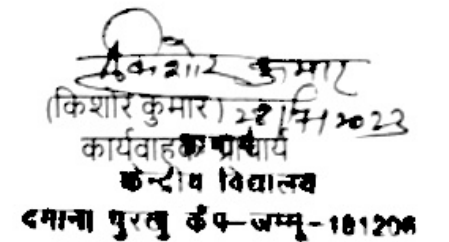 किशोर कुमार
(किशोर कुमार) 28/7/2023
कार्यवाहक प्राचार्य
केन्द्रीय विद्यालय
कैंप-जम्मू-181206